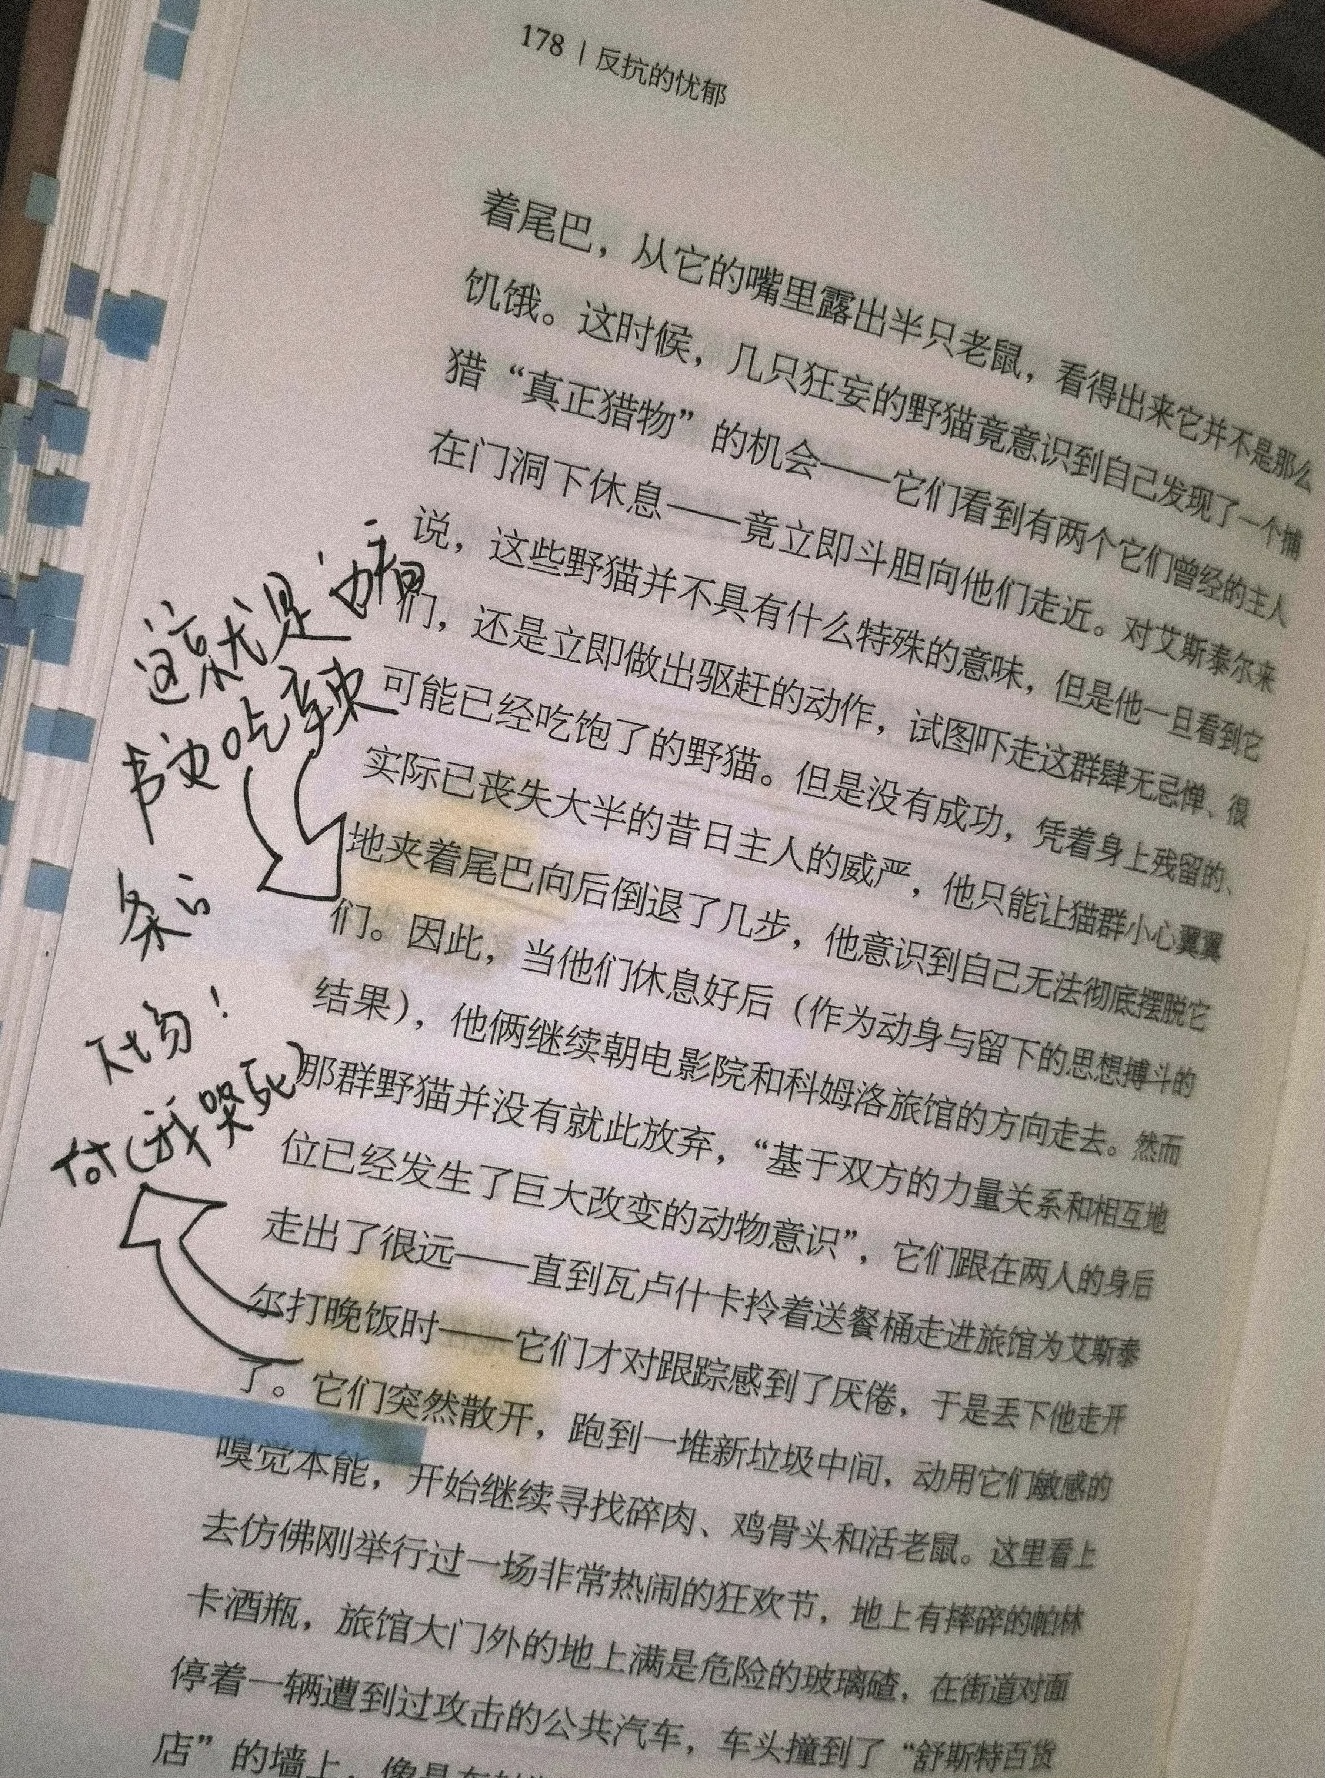 178 | 反抗的忧郁
着尾巴，从它的嘴里露出半只老鼠，看得出来它并不是那么
饥饿。这时候，几只狂妄的野猫竟意识到自己发现了一个捕
猎“真正猎物”的机会——它们看到有两个它们曾经的主人
在门洞下休息——竟立即斗胆向他们走近。对艾斯泰尔来
说，这些野猫并不具有什么特殊的意味，但是他一旦看到它
们，还是立即做出驱赶的动作，试图吓走这群肆无忌惮、很
可能已经吃饱了的野猫。但是没有成功，凭着身上残留的、
实际已丧失大半的昔日主人的威严，他只能让猫群小心翼翼
地夹着尾巴向后倒退了几步，他意识到自己无法彻底摆脱它
们。因此，当他们休息好后（作为动身与留下的思想搏斗的
结果），他俩继续朝电影院和科姆洛旅馆的方向走去。然而
那群野猫并没有就此放弃，“基于双方的力量关系和相互地
位已经发生了巨大改变的动物意识”，它们跟在两人的身后
走出了很远——直到瓦卢什卡拎着送餐桶走进旅馆为艾斯泰
尔打晚饭时——它们才对跟踪感到了厌倦，于是丢下他走开
了。它们突然散开，跑到一堆新垃圾中间，动用它们敏感的
嗅觉本能，开始继续寻找碎肉、鸡骨头和活老鼠。这里看上
去仿佛刚举行过一场非常热闹的狂欢节，地上有摔碎的帕林
卡酒瓶，旅馆大门外的地上满是危险的玻璃碴，在街道对面
停着一辆遭到过攻击的公共汽车，车头撞到了“舒斯特百货
店”的墙上，像是
这就是边看
书边吃辣
条的
下场！
（我哭死）